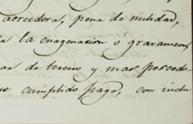 acreedora, pena de nulidad,
la enagenacion o gravamen
de tercero y mas poseedo
cumplido pago, con inclu